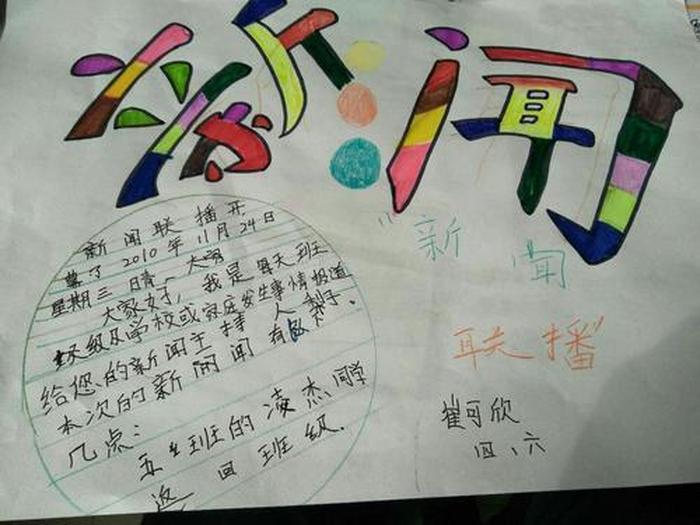 新闻
"新闻
联播"
崔可欣
四、六
新闻联播开
幕了 2010年11月24日
星期三 晴一
大家好,我是每天班
级及学校或家庭发生事情报道
给您的新闻主持人梨子。
本次的新闻闻有以下
几点:
五班的凌杰同学
返回班级.